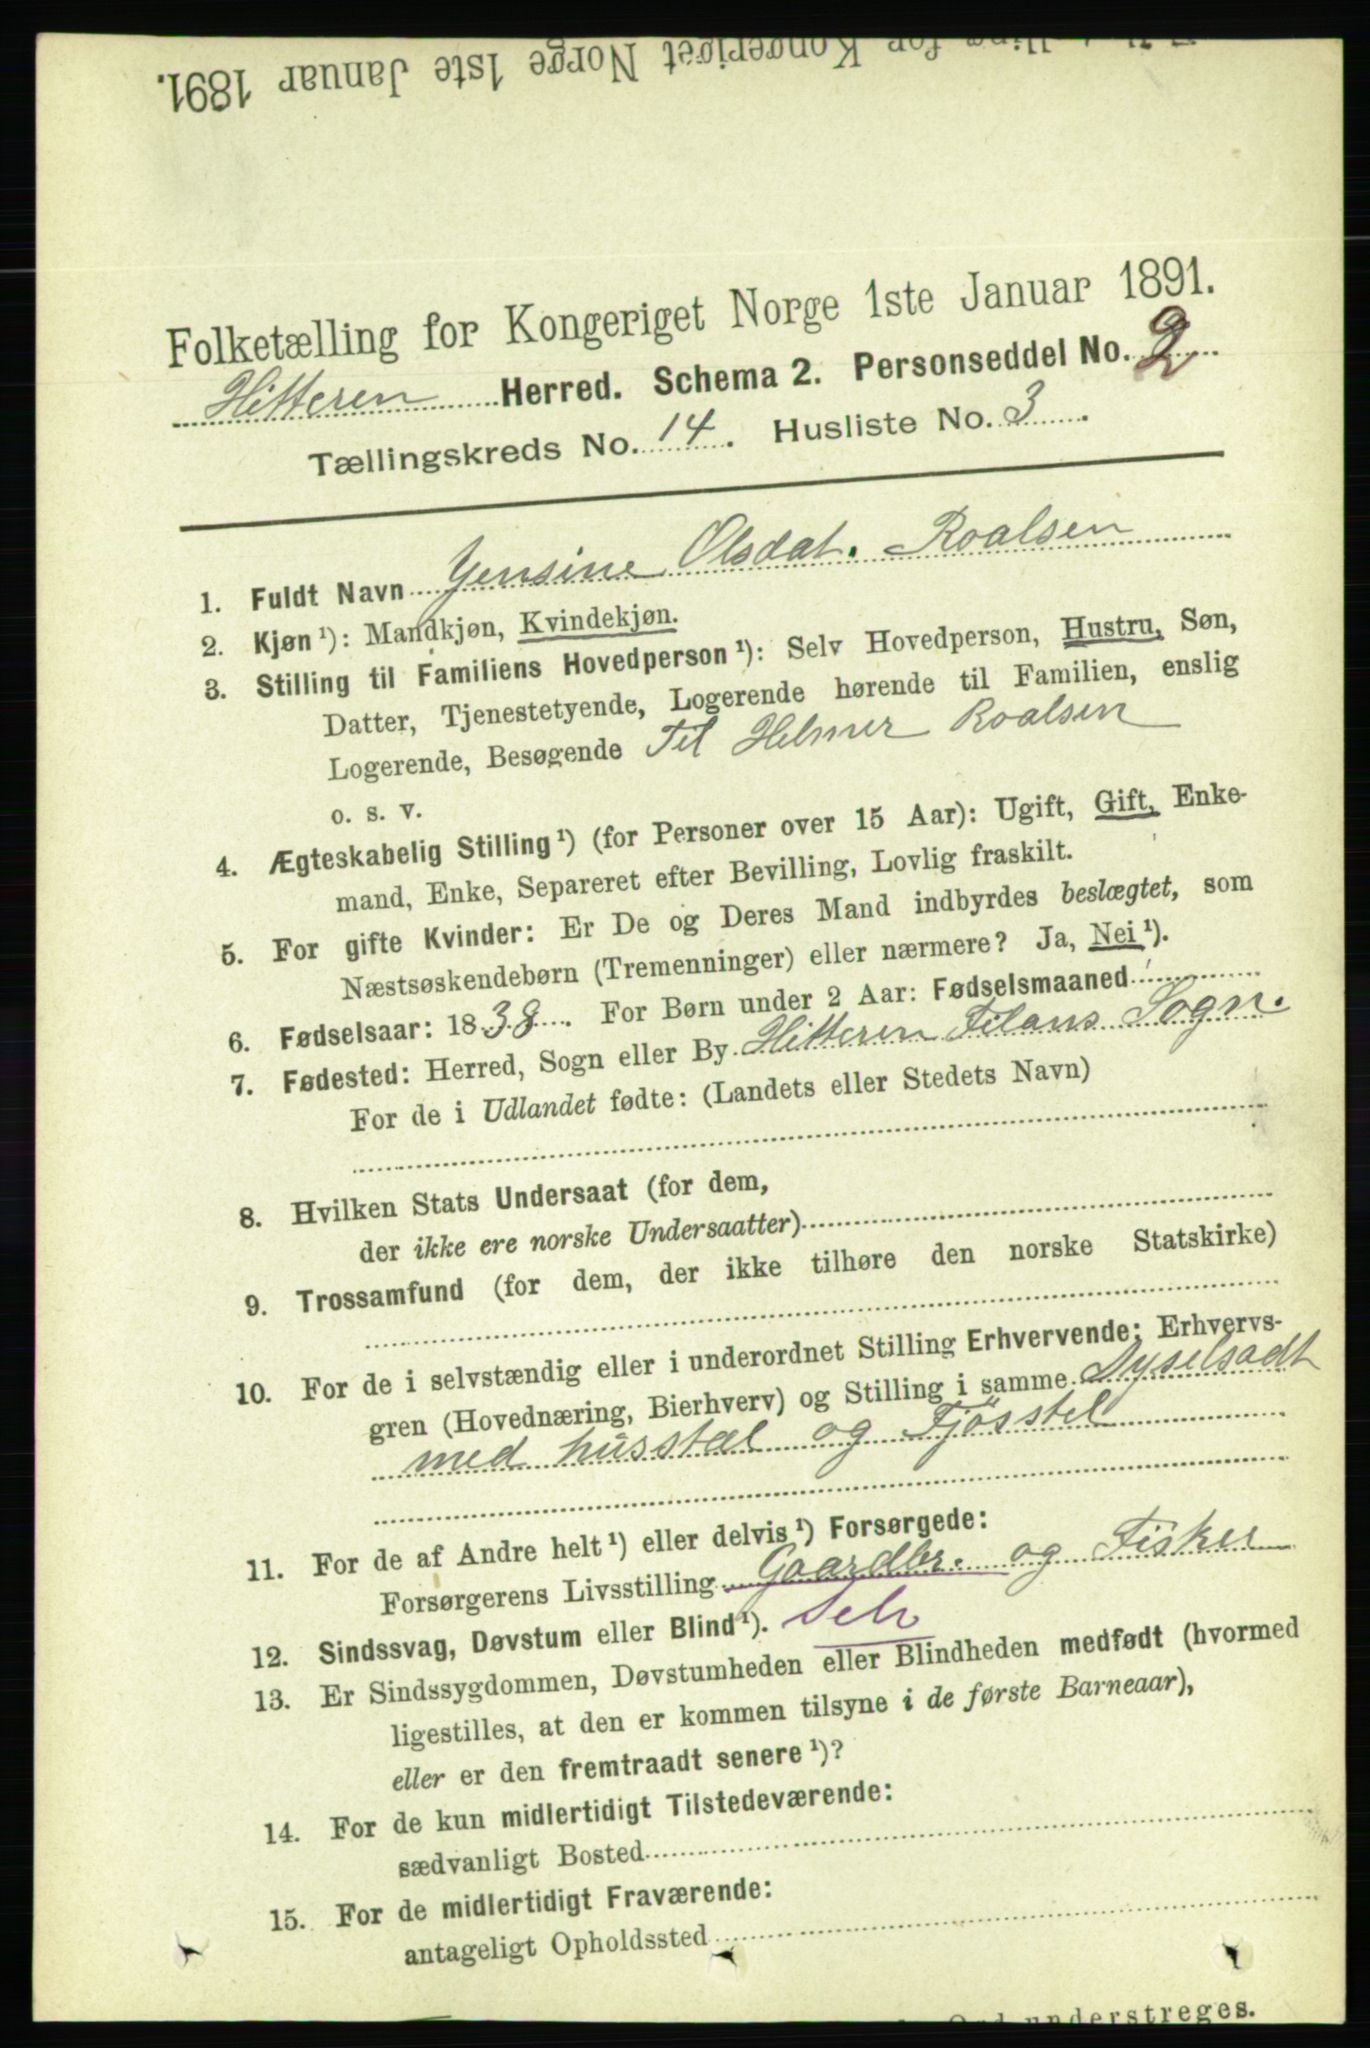 Folketælling for Kongeriget Norge 1ste Januar 1891.
Folketælling for Kongeriget Norge 1ste Januar 1891.
Hitteren Herred. Schema 2. Personseddel No. 2
Tællingskreds No. 14. Husliste No. 3.
1. Fuldt Navn Jensine Olsdat. Roalsen
2. Kjøn ¹): Mandkjøn, Kvindekjøn.
3. Stilling til Familiens Hovedperson ¹): Selv Hovedperson, Hustru, Søn,
Datter, Tjenestetyende, Logerende hørende til Familien, enslig
Logerende, Besøgende Til Helmer Roalsen
o. s. v.
4. Ægteskabelig Stilling ¹) (for Personer over 15 Aar): Ugift, Gift, Enke-
mand, Enke, Separeret efter Bevilling, Lovlig fraskilt.
5. For gifte Kvinder: Er De og Deres Mand indbyrdes beslægtet, som
Næstsøskendebørn (Tremenninger) eller nærmere? Ja, Nei ¹).
6. Fødselsaar: 1838. For Børn under 2 Aar: Fødselsmaaned
7. Fødested: Herred, Sogn eller By Hitteren Filans Sogn.
For de i Udlandet fødte: (Landets eller Stedets Navn)
8. Hvilken Stats Undersaat (for dem,
der ikke ere norske Undersaatter)
9. Trossamfund (for dem, der ikke tilhøre den norske Statskirke)
10. For de i selvstændig eller i underordnet Stilling Erhvervende: Erhvervs-
gren (Hovednæring, Bierhverv) og Stilling i samme Syselsadt
med husstel og Fjösstel
11. For de af Andre helt ¹) eller delvis ¹) Forsørgede:
Forsørgerens Livsstilling Gaardbr. og Fisker
Selv
12. Sindssvag, Døvstum eller Blind ¹).
13. Er Sindssygdommen, Døvstumheden eller Blindheden medfødt (hvormed
ligestilles, at den er kommen tilsyne i de første Barneaar),
eller er den fremtraadt senere ¹)?
14. For de kun midlertidigt Tilstedeværende:
sædvanligt Bosted
15. For de midlertidigt Fraværende:
antageligt Opholdssted
Ord understreges.